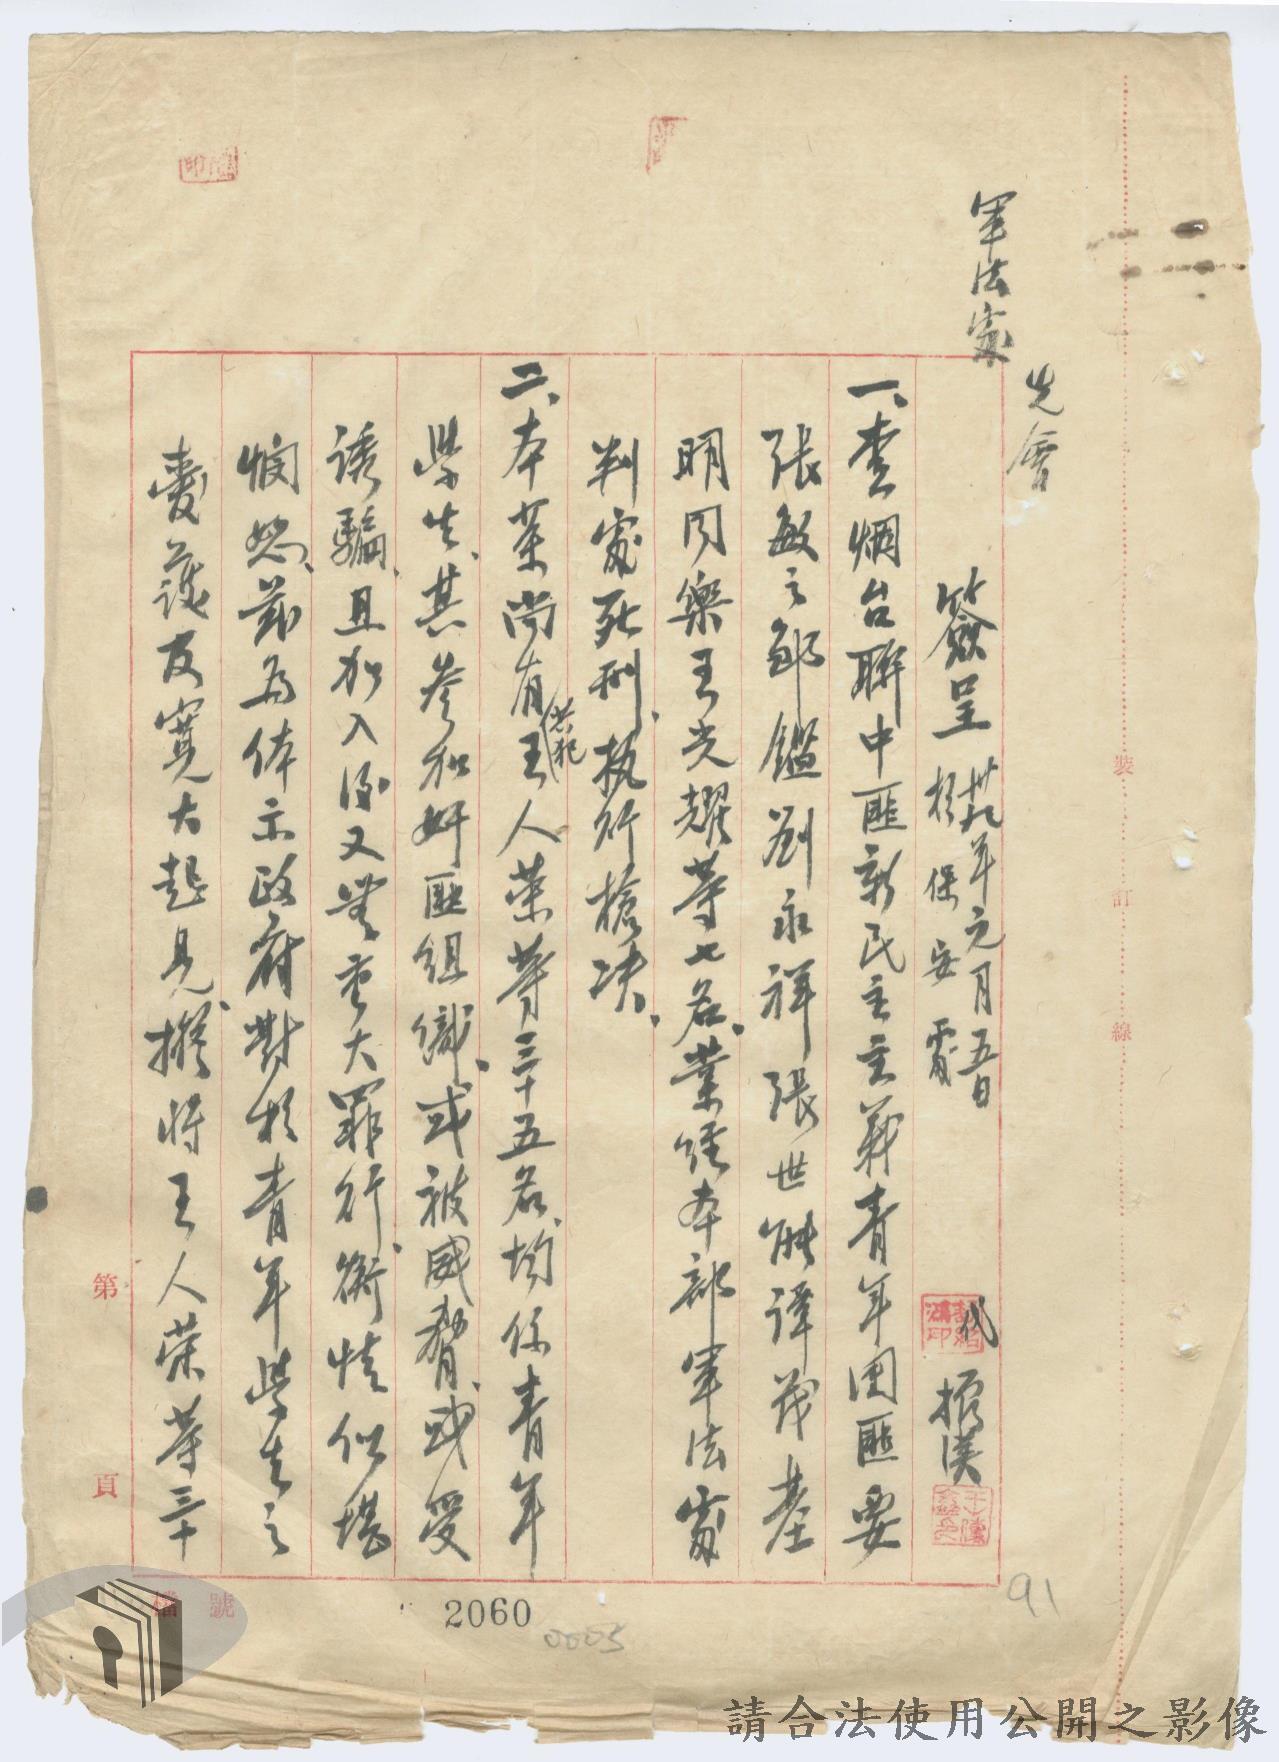 軍法處
先會
簽呈 卅九年元月五日
於 保 安 處
代
振漢
一、查烟台聯中匪新民主主義青年团匪要
張敏之鄒鑑劉永祥張世能譚茂基
明同樂王光耀等七名、業經本部軍法處
判處死刑、执行槍决、
二、本案尚有共犯王人荣等三十五名、均係青年
學生、其參加奸匪組織、或被威脅、或受
诱騙、且加入後又無重大罪行、衡情似堪
憫恕、茲為体示政府對於青年學生之
愛護及寬大起見、擬將王人荣等三十
裝
訂
線
第
頁
檔 號
2060
0003
91
請合法使用公開之影像